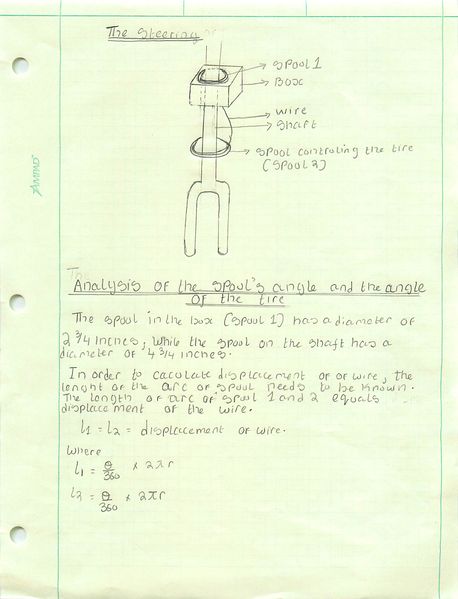 The Steering
SPOOL 1
Box
wire
Shaft
Spool controling the tire
(Spool 2)
AMPAD
The
Analysis of the spool's angle and the angle
of the tire
The spool in the box (spool 1) has a diameter of
2 3/4 inches, while the spool on the shaft has a
diameter of 4 3/4 inches.
In order to caculate displacement of or wire, the
lenght of the arc of spool needs to be known.
The length of arc of spool 1 and 2 equals
displacement of the wire.
l1 = l2 = displacement of wire.
where
l1 = θ/360 × 2πr
l2 = θ/360 × 2πr